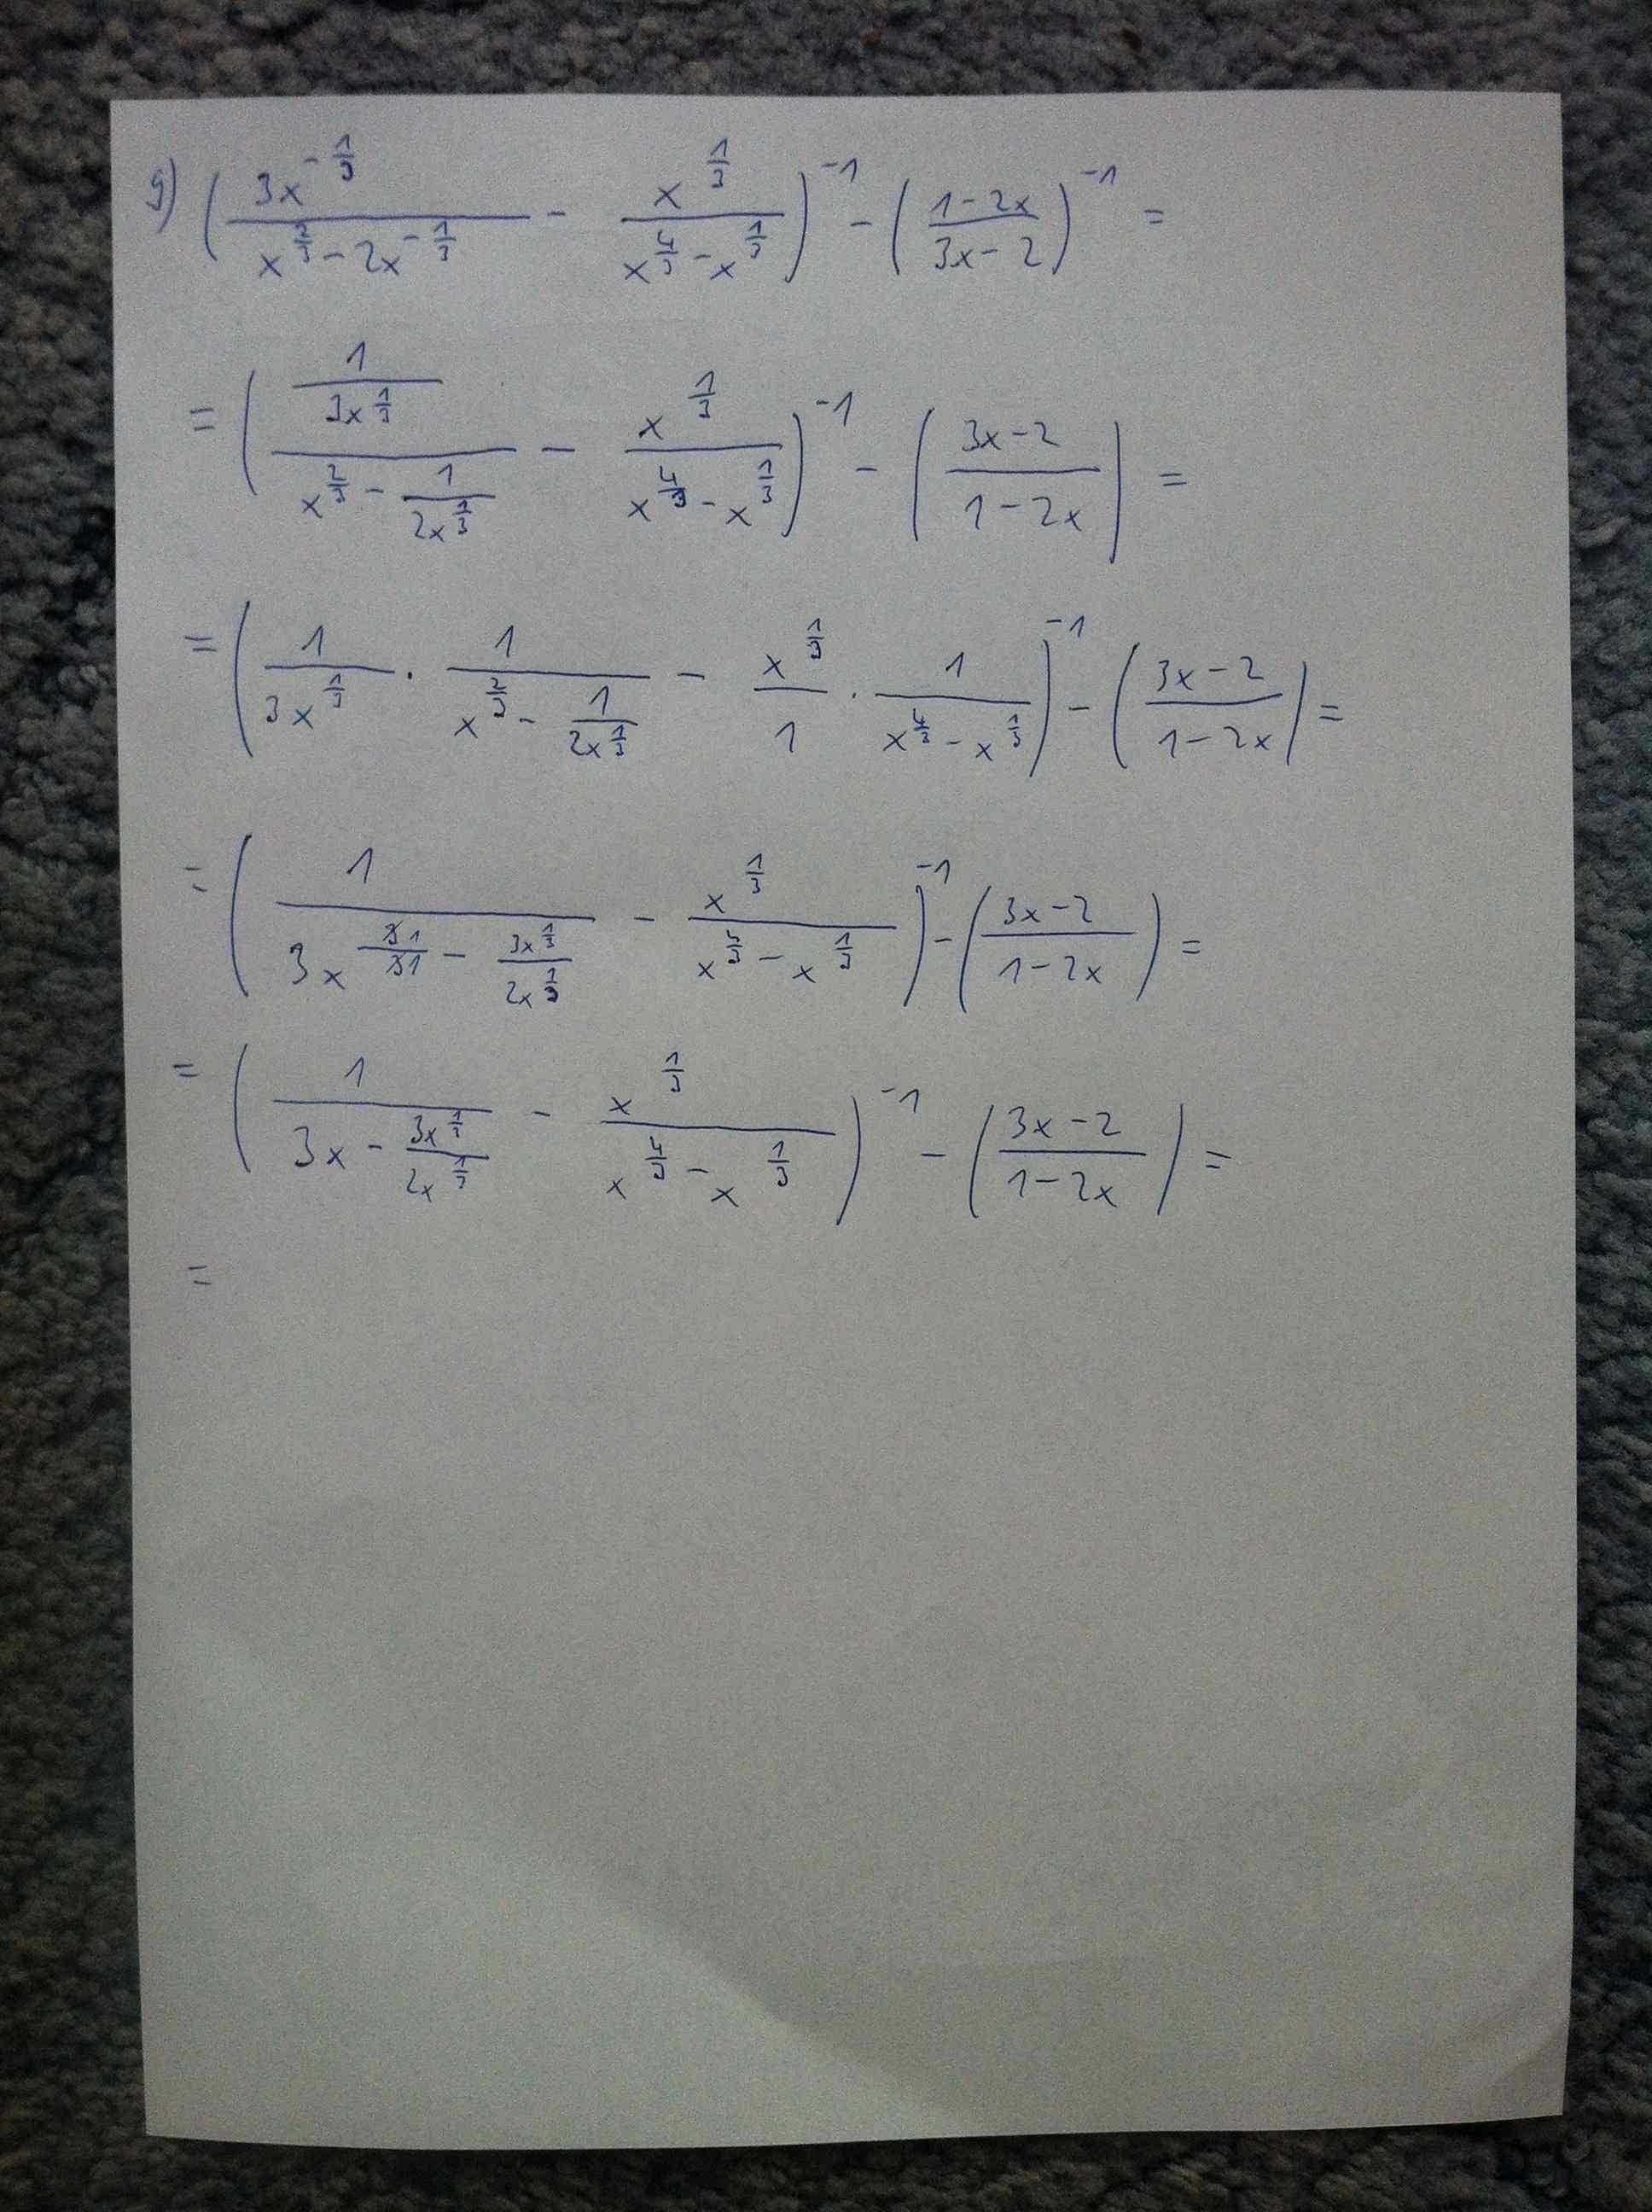 g) (3x^(-1/3) / (x^(2/3) - 2x^(-1/3)) - x^(1/3) / (x^(4/3) - x^(1/3)))^-1 - ((1-2x)/(3x-2))^-1 =
= ((1/(3x^(1/3))) / (x^(2/3) - 1/(2x^(1/3))) - x^(1/3) / (x^(4/3) - x^(1/3)))^-1 - ((3x-2)/(1-2x)) =
= (1/(3x^(1/3)) · 1/(x^(2/3) - 1/(2x^(1/3))) - x^(1/3)/1 · 1/(x^(4/3) - x^(1/3)))^-1 - ((3x-2)/(1-2x)) =
= (1/(3x^(31/31) - 3x^(1/3)/(2x^(1/3))) - x^(1/3)/(x^(4/3) - x^(1/3)))^-1 - ((3x-2)/(1-2x)) =
= (1/(3x - 3x^(1/3)/(2x^(1/3))) - x^(1/3)/(x^(4/3) - x^(1/3)))^-1 - ((3x-2)/(1-2x)) =
=